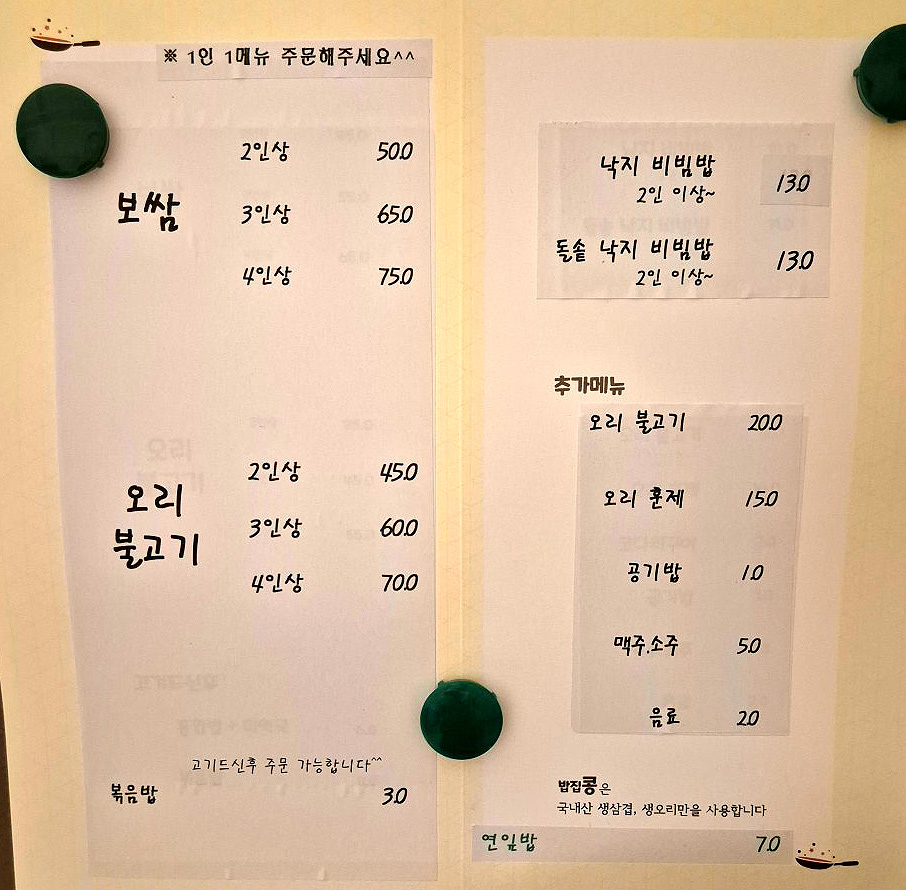 ※ 1인 1메뉴 주문해주세요^^
보쌈
2인상 50.0
3인상 65.0
4인상 75.0
오리
불고기
2인상 45.0
3인상 60.0
4인상 70.0
고기드신후 주문 가능합니다^^
볶음밥 3.0
낙지 비빔밥 13.0
2인 이상~
돌솥 낙지 비빔밥 13.0
2인 이상~
추가메뉴
오리 불고기 20.0
오리 훈제 15.0
공기밥 1.0
맥주.소주 5.0
음료 2.0
밥집콩은
국내산 생삼겹, 생오리만을 사용합니다
연잎밥 7.0